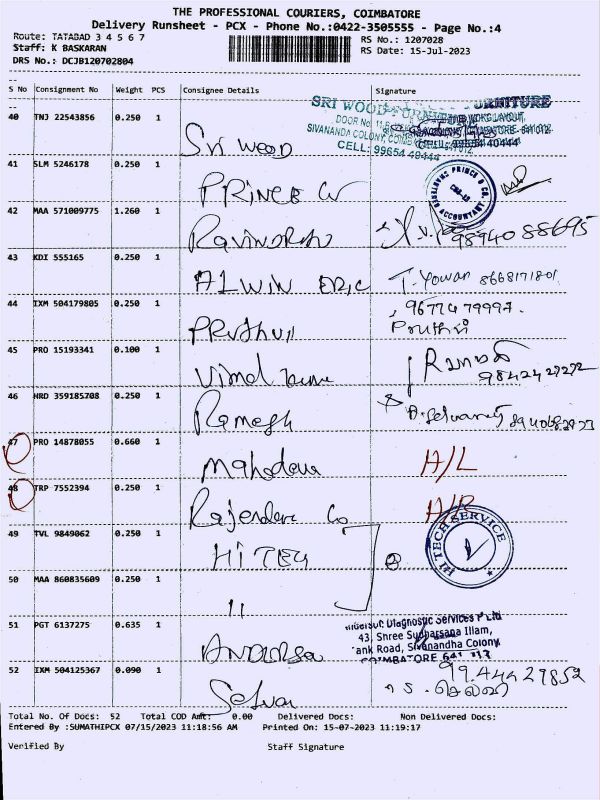 THE PROFESSIONAL COURIERS, COIMBATORE
Delivery Runsheet - PCX - Phone No.:0422-3505555 - Page No.:4
Route: TATABAD 3 4 5 6 7 RS No.: 1207028
Staff: K BASKARAN RS Date: 15-Jul-2023
DRS No.: DCJB120702804
S No Consignment No Weight PCS Consignee Details Signature
SRI WOOD FURNITURE
40 TNJ 22543856 0.250 1 Sri wood
SIVANANDA COLONY,
CELL: 99654 40444
41 SLM 5246178 0.250 1 PRINCE
PRINCE & CO.
ACCOUNTANT
42 MAA 571009775 1.260 1 9894088695
43 KDI 555165 0.250 1 ALWIN ERIC T. Yowan 8668171801
44 IXM 504179805 0.250 1 Pruthvi 9677479997.
Pruthvi
45 PRO 15193341 0.100 1 Vimal 9842427272
46 HRD 359185708 0.250 1 Ramesh
47 PRO 14878055 0.660 1 A/L
48 TRP 7552394 0.250 1 Rajendra Co A/R
49 TVL 9849062 0.250 1 HITEH
HI TECH SERVICE
50 MAA 860835609 0.250 1 "
51 PGT 6137275 0.635 1
Diagnostic Services P Ltd
43, Shree Sudharsana Illam,
Road, Sivanandha Colony
COIMBATORE 641 012
52 IXM 504125367 0.090 1 Selvar 9944429852
Total No. Of Docs: 52 Total COD Amt: 0.00 Delivered Docs: Non Delivered Docs:
Entered By :SUMATHIPCX 07/15/2023 11:18:56 AM Printed On: 15-07-2023 11:19:17
Verified By Staff Signature